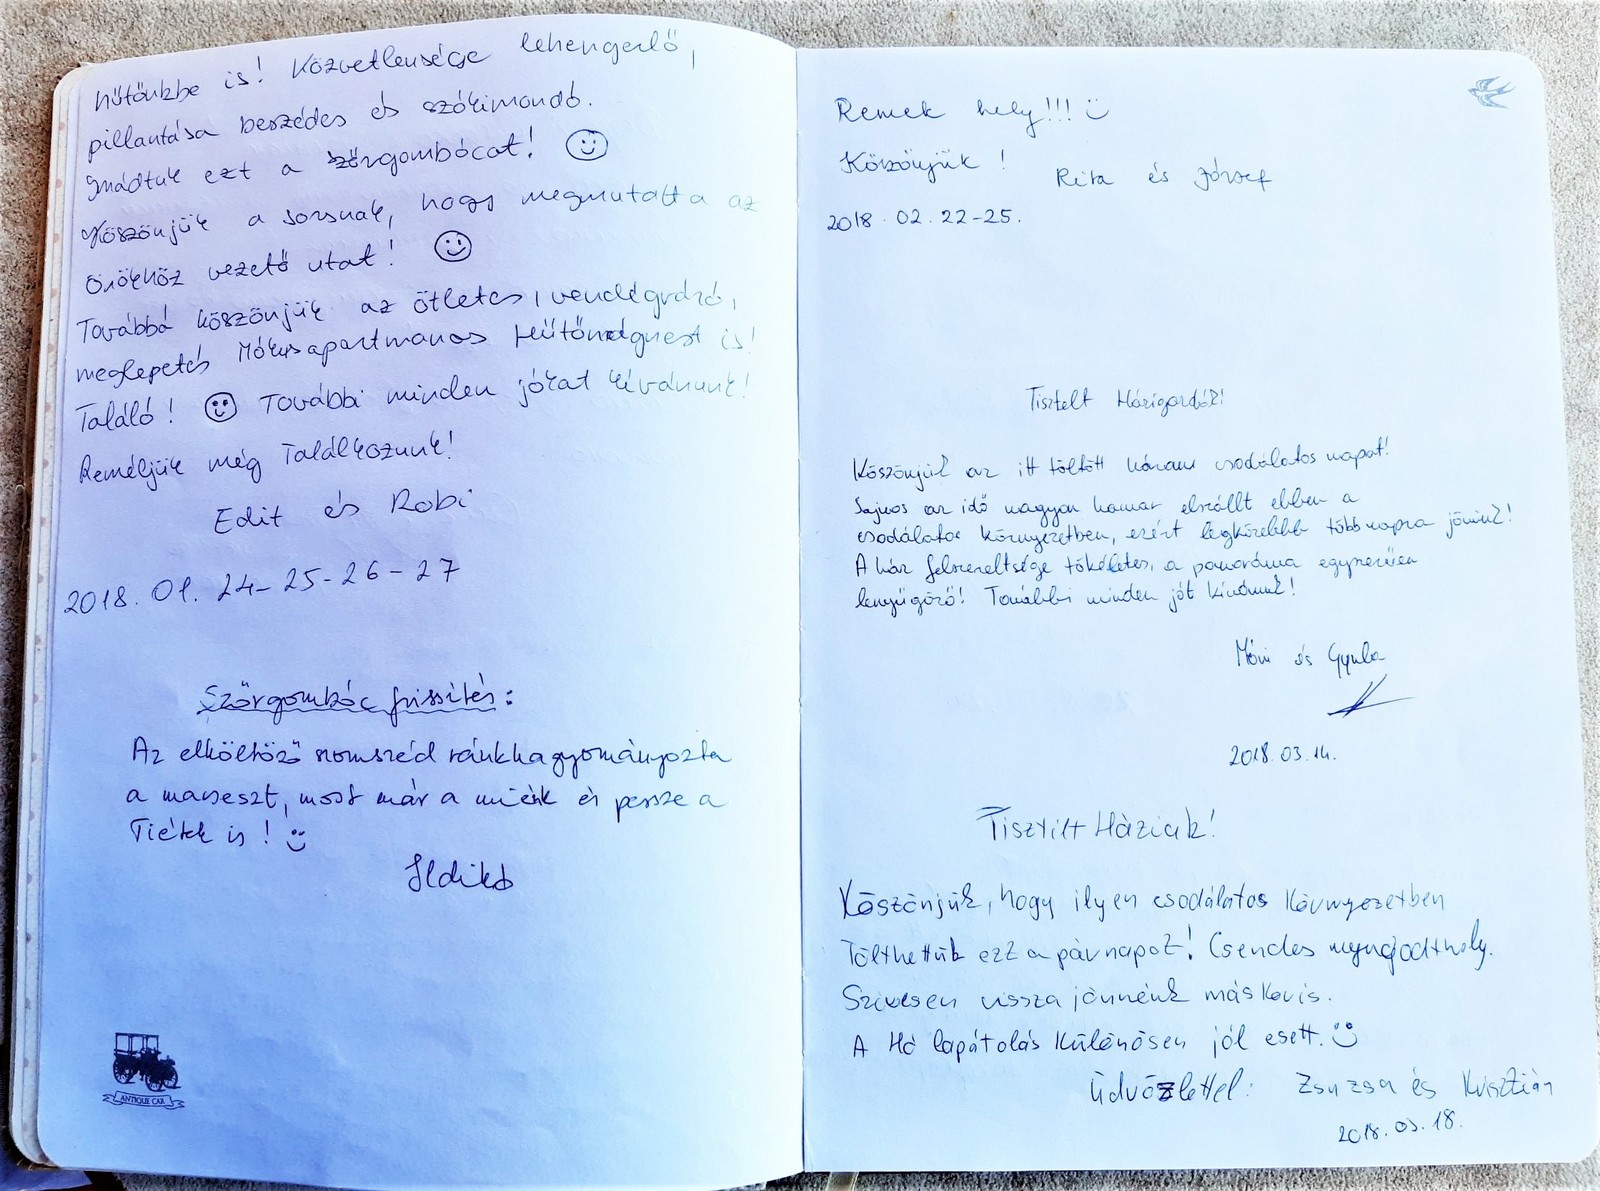 hűtőnkbe is! Közvetlensége lehengerlő,
pillantása beszédes és szókimondó.
Imádtuk ezt a szőrgombócot! 
Köszönjük a sorsnak, hogy megmutatta az
Önökhöz vezető utat! 
Továbbá köszönjük az ötletes, vendégváró,
meglepetés Mókusapartmanos Hűtőmágnest is!
Találó! További minden jókat kívánunk!
Reméljük még Találkozunk!
Edit és Robi
2018. 01. 24-25-26-27
Szőrgombóc frissítés:
Az elköltöző szomszéd ránkhagyományozta
a maceszt, most már a miénk és persze a
Tiétek is!
Ildikó
ANTIQUE CAR
Remek hely!!!
Köszönjük!
Rita és József
2018.02.22-25.
Tisztelt Házigazdák!
Köszönjük az itt töltött három csodálatos napot!
Sajnos az idő nagyon hamar elszállt ebben a
csodálatos környezetben, ezért legközelebb több napra jövünk!
A ház felszereltsége tökéletes, a panoráma egyszerűen
lenyűgöző! További minden jót kívánunk!
Móni és Gyula
2018.03.14.
Tisztelt Háziak!
Köszönjük, hogy ilyen csodálatos Környezetben
Tölthettük ezt a párnapot! Csendes nyugodt hely.
Szívesen vissza jönnénk máskor is.
A Hó lapátolás Különösen jól esett.
Üdvözlettel: Zsuzsa és Krisztián
2018.03.18.